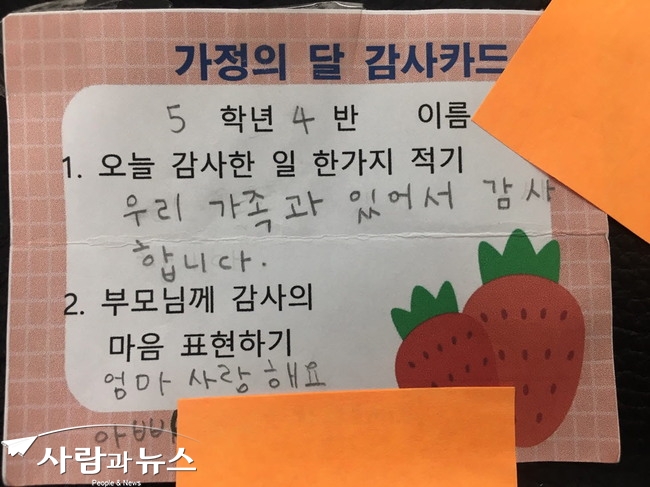 가정의 달 감사카드
5 학년 4 반 이름
1. 오늘 감사한 일 한가지 적기
우리 가족과 있어서 감사
합니다.
2. 부모님께 감사의
마음 표현하기
엄마 사랑해요
아빠
사람과뉴스
People & News